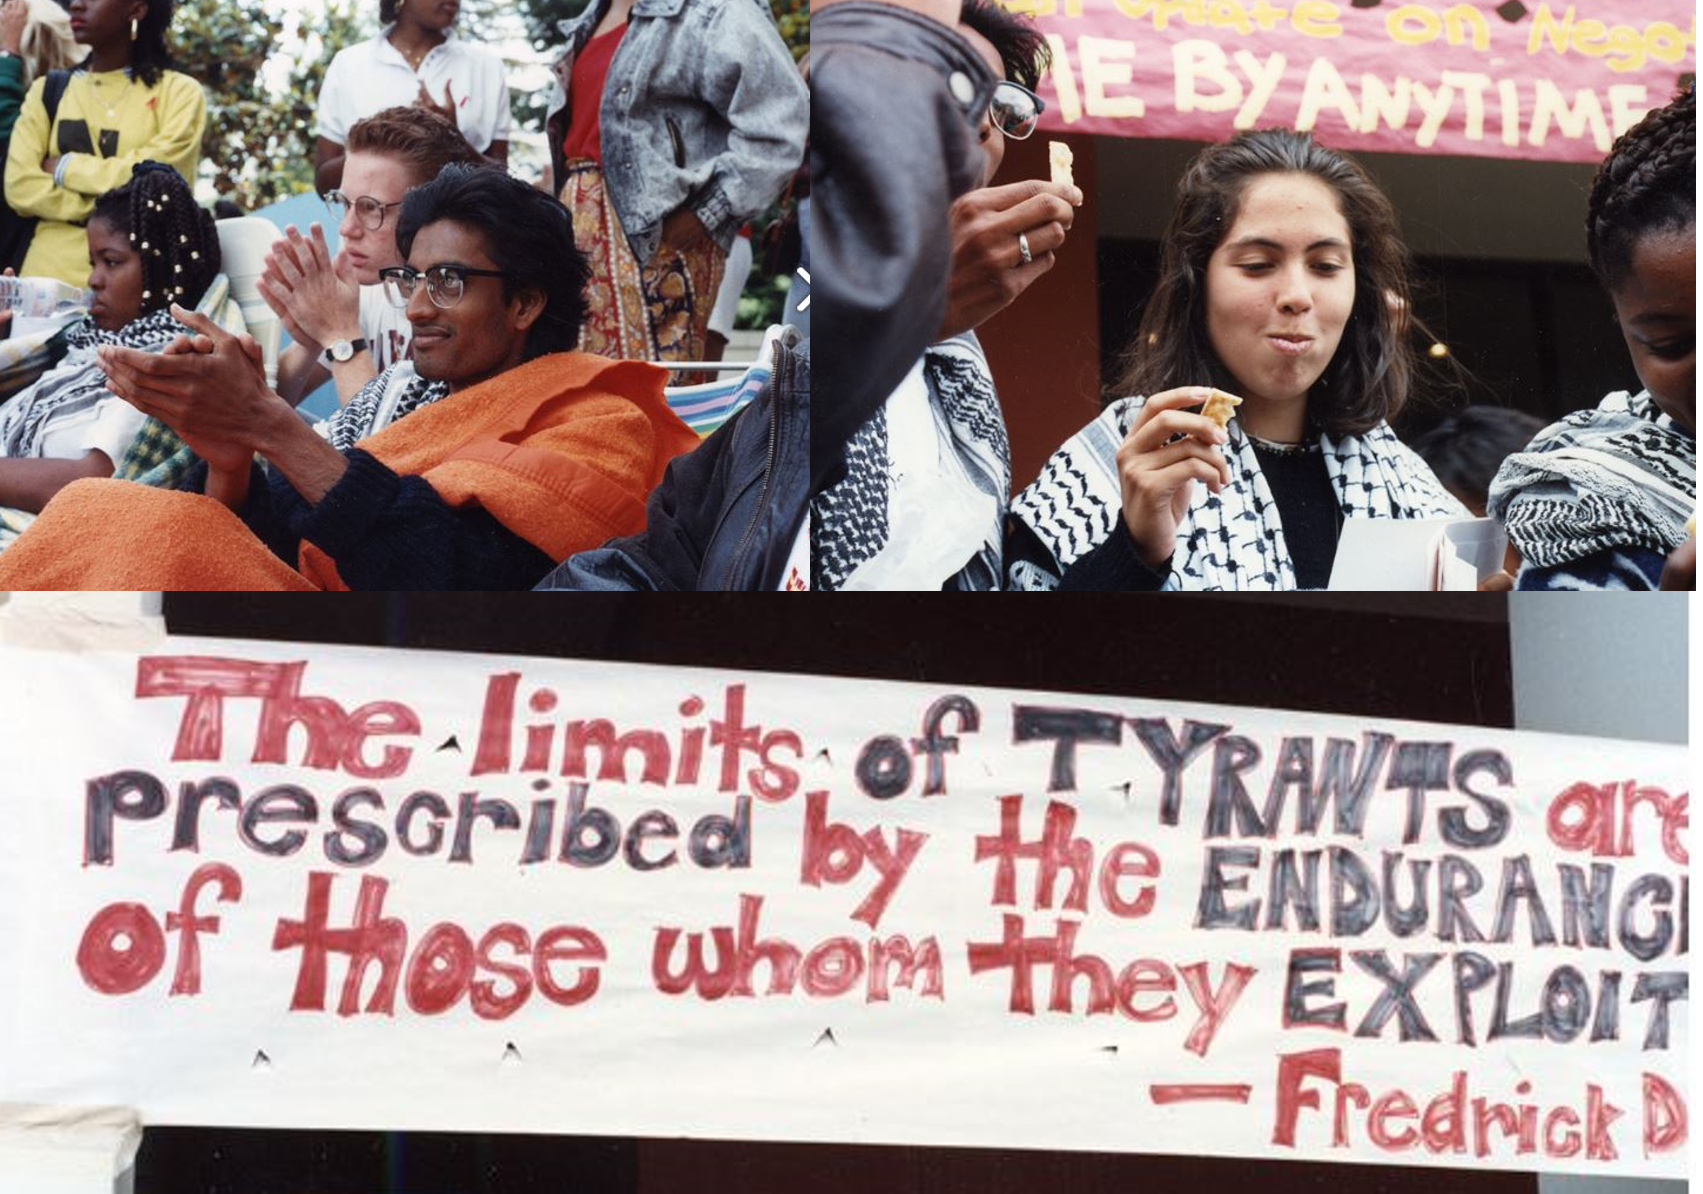 Update on Nego
ME BY ANYTIME
The limits of TYRANTS are
prescribed by the ENDURANC
of those whom they EXPLOIT
— Fredrick D